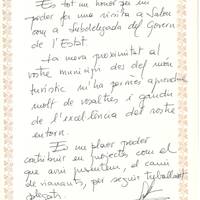 És tot un honor per mi
poder fer una visita a Salou
com a Subdelegada del Govern
de l'Estat
La meva proximitat al
vostre municipi des del món
turístic m'ha permès aprendre
molt de vosaltres i gaudir
de l'excel·lència del vostre
entorn.
És un plaer poder
contribuir en projectes com el
que avui presentem, el camí
de vianants, per seguir treballant
plegats